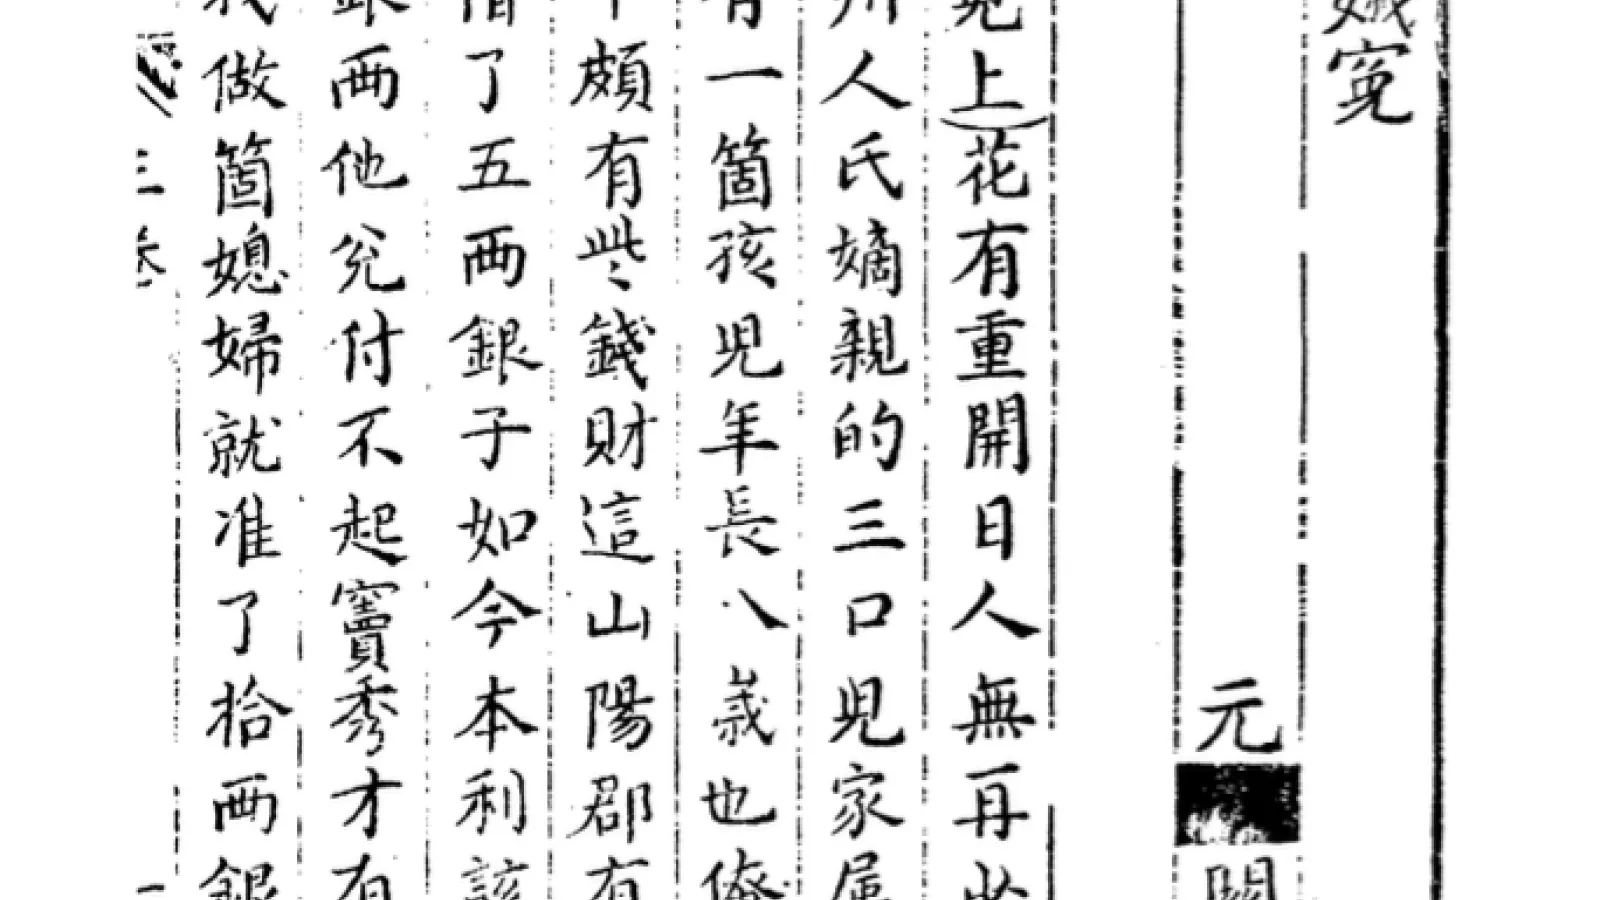 娥寃
元 關
兒上花有重開日人無再少
州人氏嫡親的三口兒家屬
有一箇孩兒年長八歲也俺
頗有些錢財這山陽郡有
借了五两銀子如今本利該
銀两他兊付不起竇秀才有
我做箇媳婦就准了拾两銀